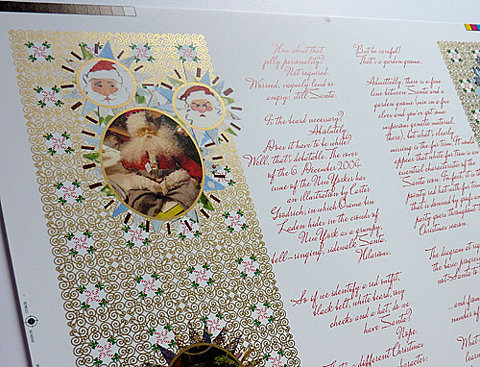 How about that
jolly personality?
Not required.
Worried, vaguely lewd or
angry: still Santa.
Is the beard necessary?
Absolutely.
Does it have to be white?
Well, that's debatable. The cover
of the 6 December 2004
issue of the New Yorker has
an illustration by Carter
Goodrich, in which Osama bin
Laden hides in the crowds of
New York as a grumpy,
bell-ringing, sidewalk Santa.
Hilarious.
So if we identify a red outfit,
black belt, white beard, rosy
cheeks and a hat, do we
have Santa?
Nope.
That's a different Christmas
character:
But be careful!
That's a garden gnome.
Admittedly, there is a fine
line between Santa and a
garden gnome (mix in a few
elves and you've got some
suspicious genetic material,
there), but what's clearly
missing is the fur trim. It would
appear that white fur trim is an
essential characteristic of the
Santa icon. In fact, it is the
pointy red hat with fur trim
that is donned by
party goers throughout
Christmas season.
The diagram at
the basic
not Santa
and from
number of
What